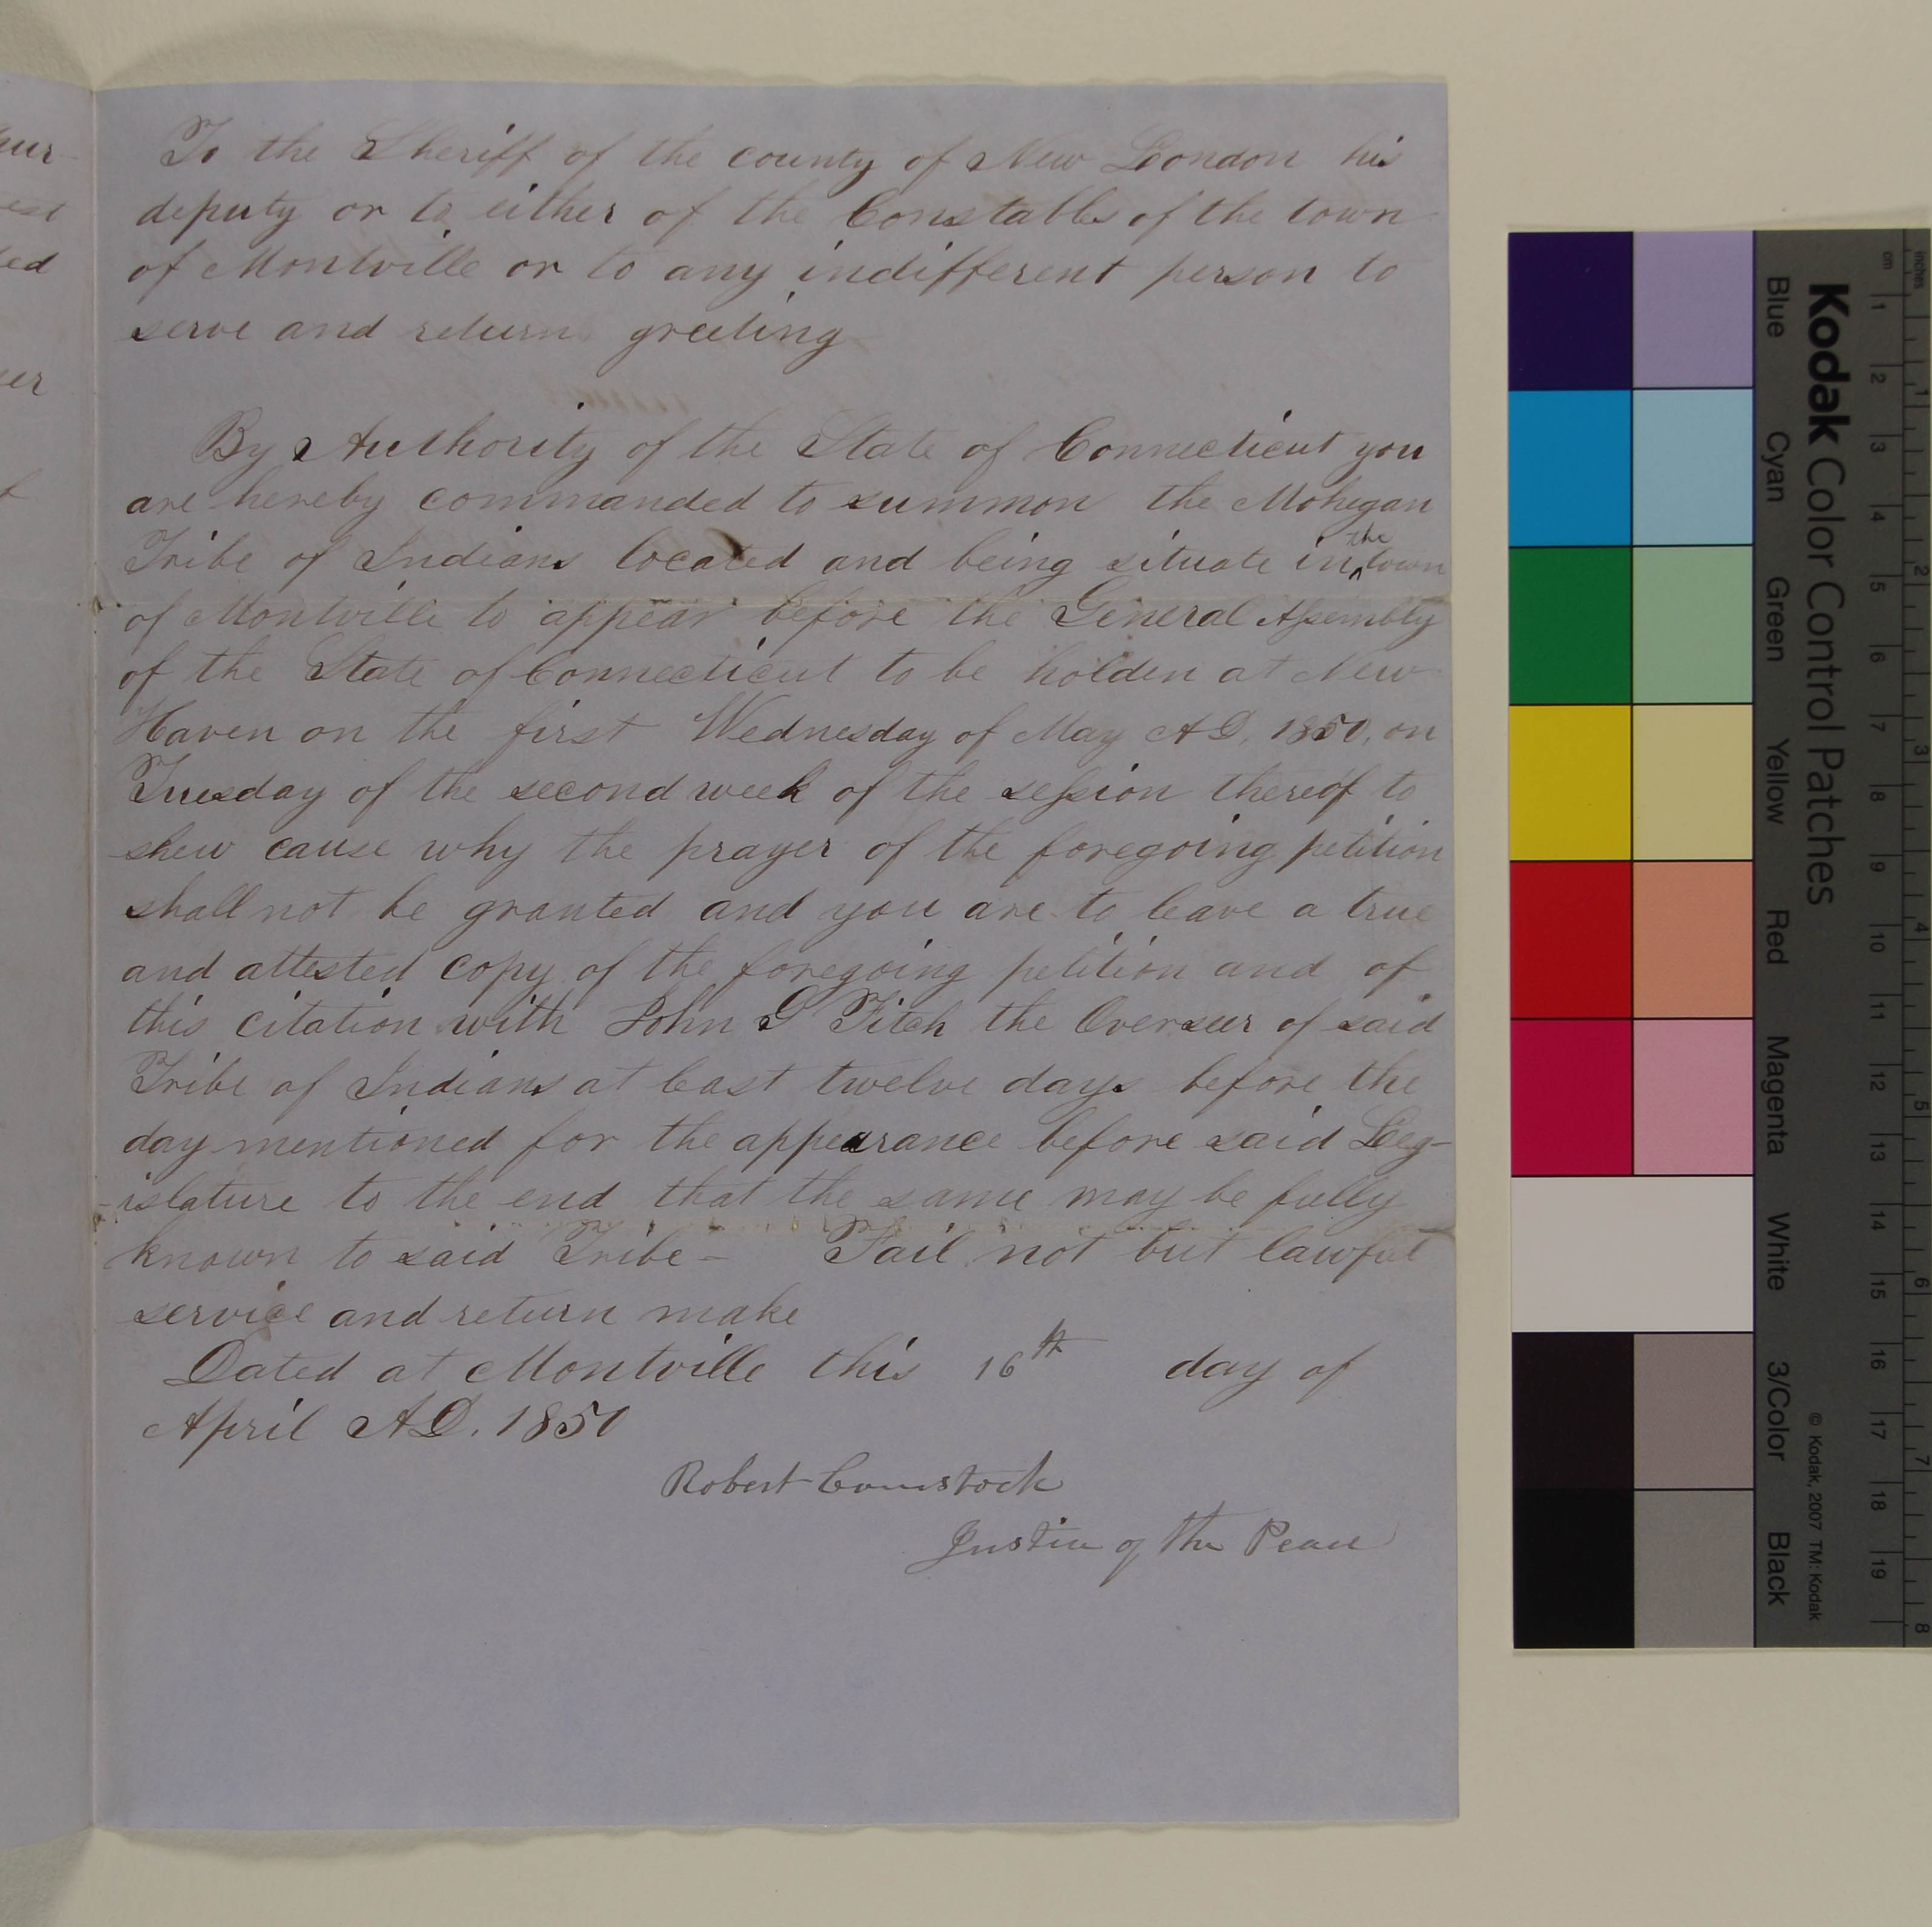 To the Sheriff of the county of New London his
deputy or to either of the Constables of the town
of Montville or to any indifferent person to
serve and return greeting
By Authority of the State of Connecticut you
are hereby commanded to summon the Mohegan
Tribe of Indians located and being situate in ^the town
of Montville to appear before the General Assembly
of the State of Connecticut to be holden at New
Haven on the first Wednesday of May A D, 1850, on
Tuesday of the second week of the session thereof to
shew cause why the prayer of the foregoing petition
shall not be granted and you are to leave a true
and attested copy of the foregoing petition and of
this citation with John G Fitch the Overseer of said
Tribe of Indians at least twelve days before the
day mentioned for the appearance before said Leg-
-islature to the end that the same may be fully
known to said Tribe - Fail not but lawful
service and return make
Dated at Montville this 16th day of
April A D. 1850
Robert Comstock
Justice of the Peace
ur
est
ed
er
Kodak Color Control Patches
Blue Cyan Green Yellow Red Magenta White 3/Color Black
© Kodak, 2007 TM: Kodak
cm 1 2 3 4 5 6 7 8 9 10 11 12 13 14 15 16 17 18 19
inches 1 2 3 4 5 6 7 8